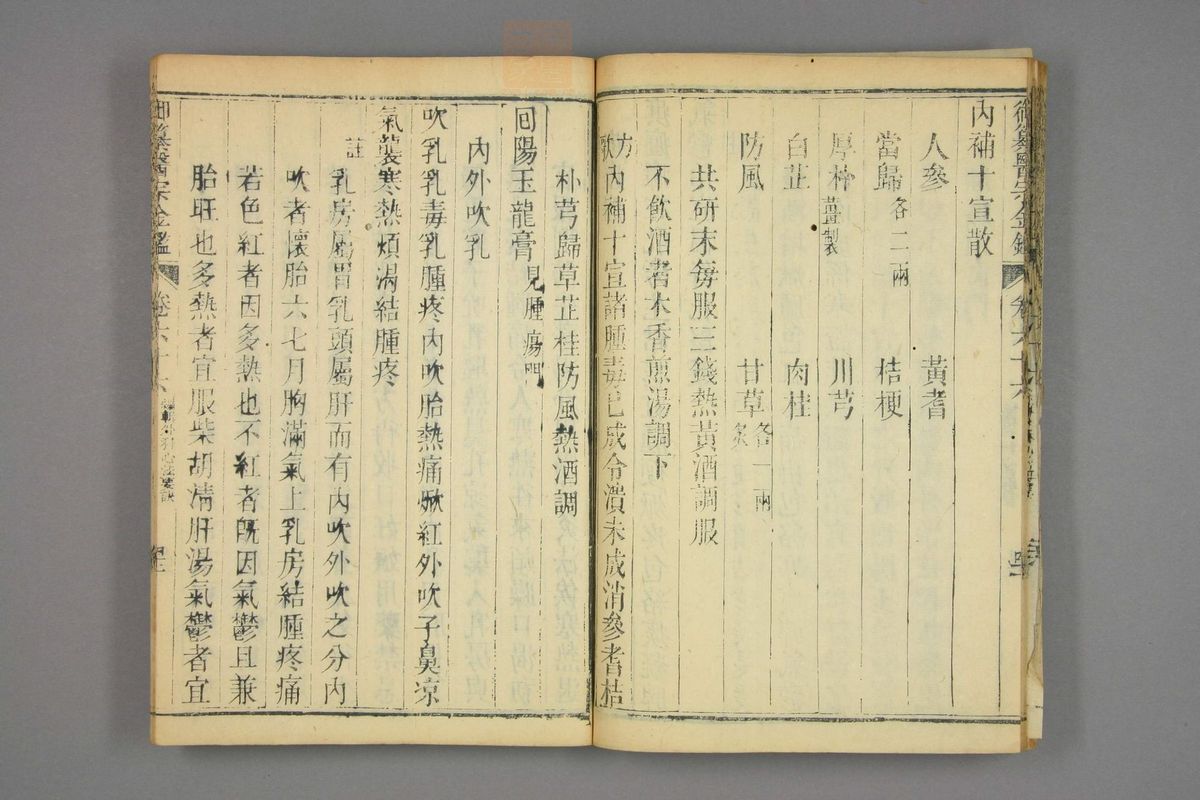 內補十宣散
人參 黃耆
當歸各二兩 桔梗
厚朴薑製 川芎
白芷 肉桂
防風 甘草炙各一兩
共研末每服三錢熱黃酒調服
不飲酒者木香煎湯調下
方歌內補十宣諸腫毒已成令潰未成消參耆桔
朴芎歸草芷桂防風熱酒調
回陽玉龍膏見腫瘍門
內外吹乳
吹乳乳毒乳腫疼內吹胎熱痛焮紅外吹子鼻凉
氣襲寒熱煩渴結腫疼
註
乳房屬胃乳頭屬肝而有內吹外吹之分內
吹者懷胎六七月胸滿氣上乳房結腫疼痛
若色紅者因多熱也不紅者既因氣鬱且兼
胎旺也多熱者宜服柴胡清肝湯氣鬱者宜
御纂醫宗金鑑 卷六